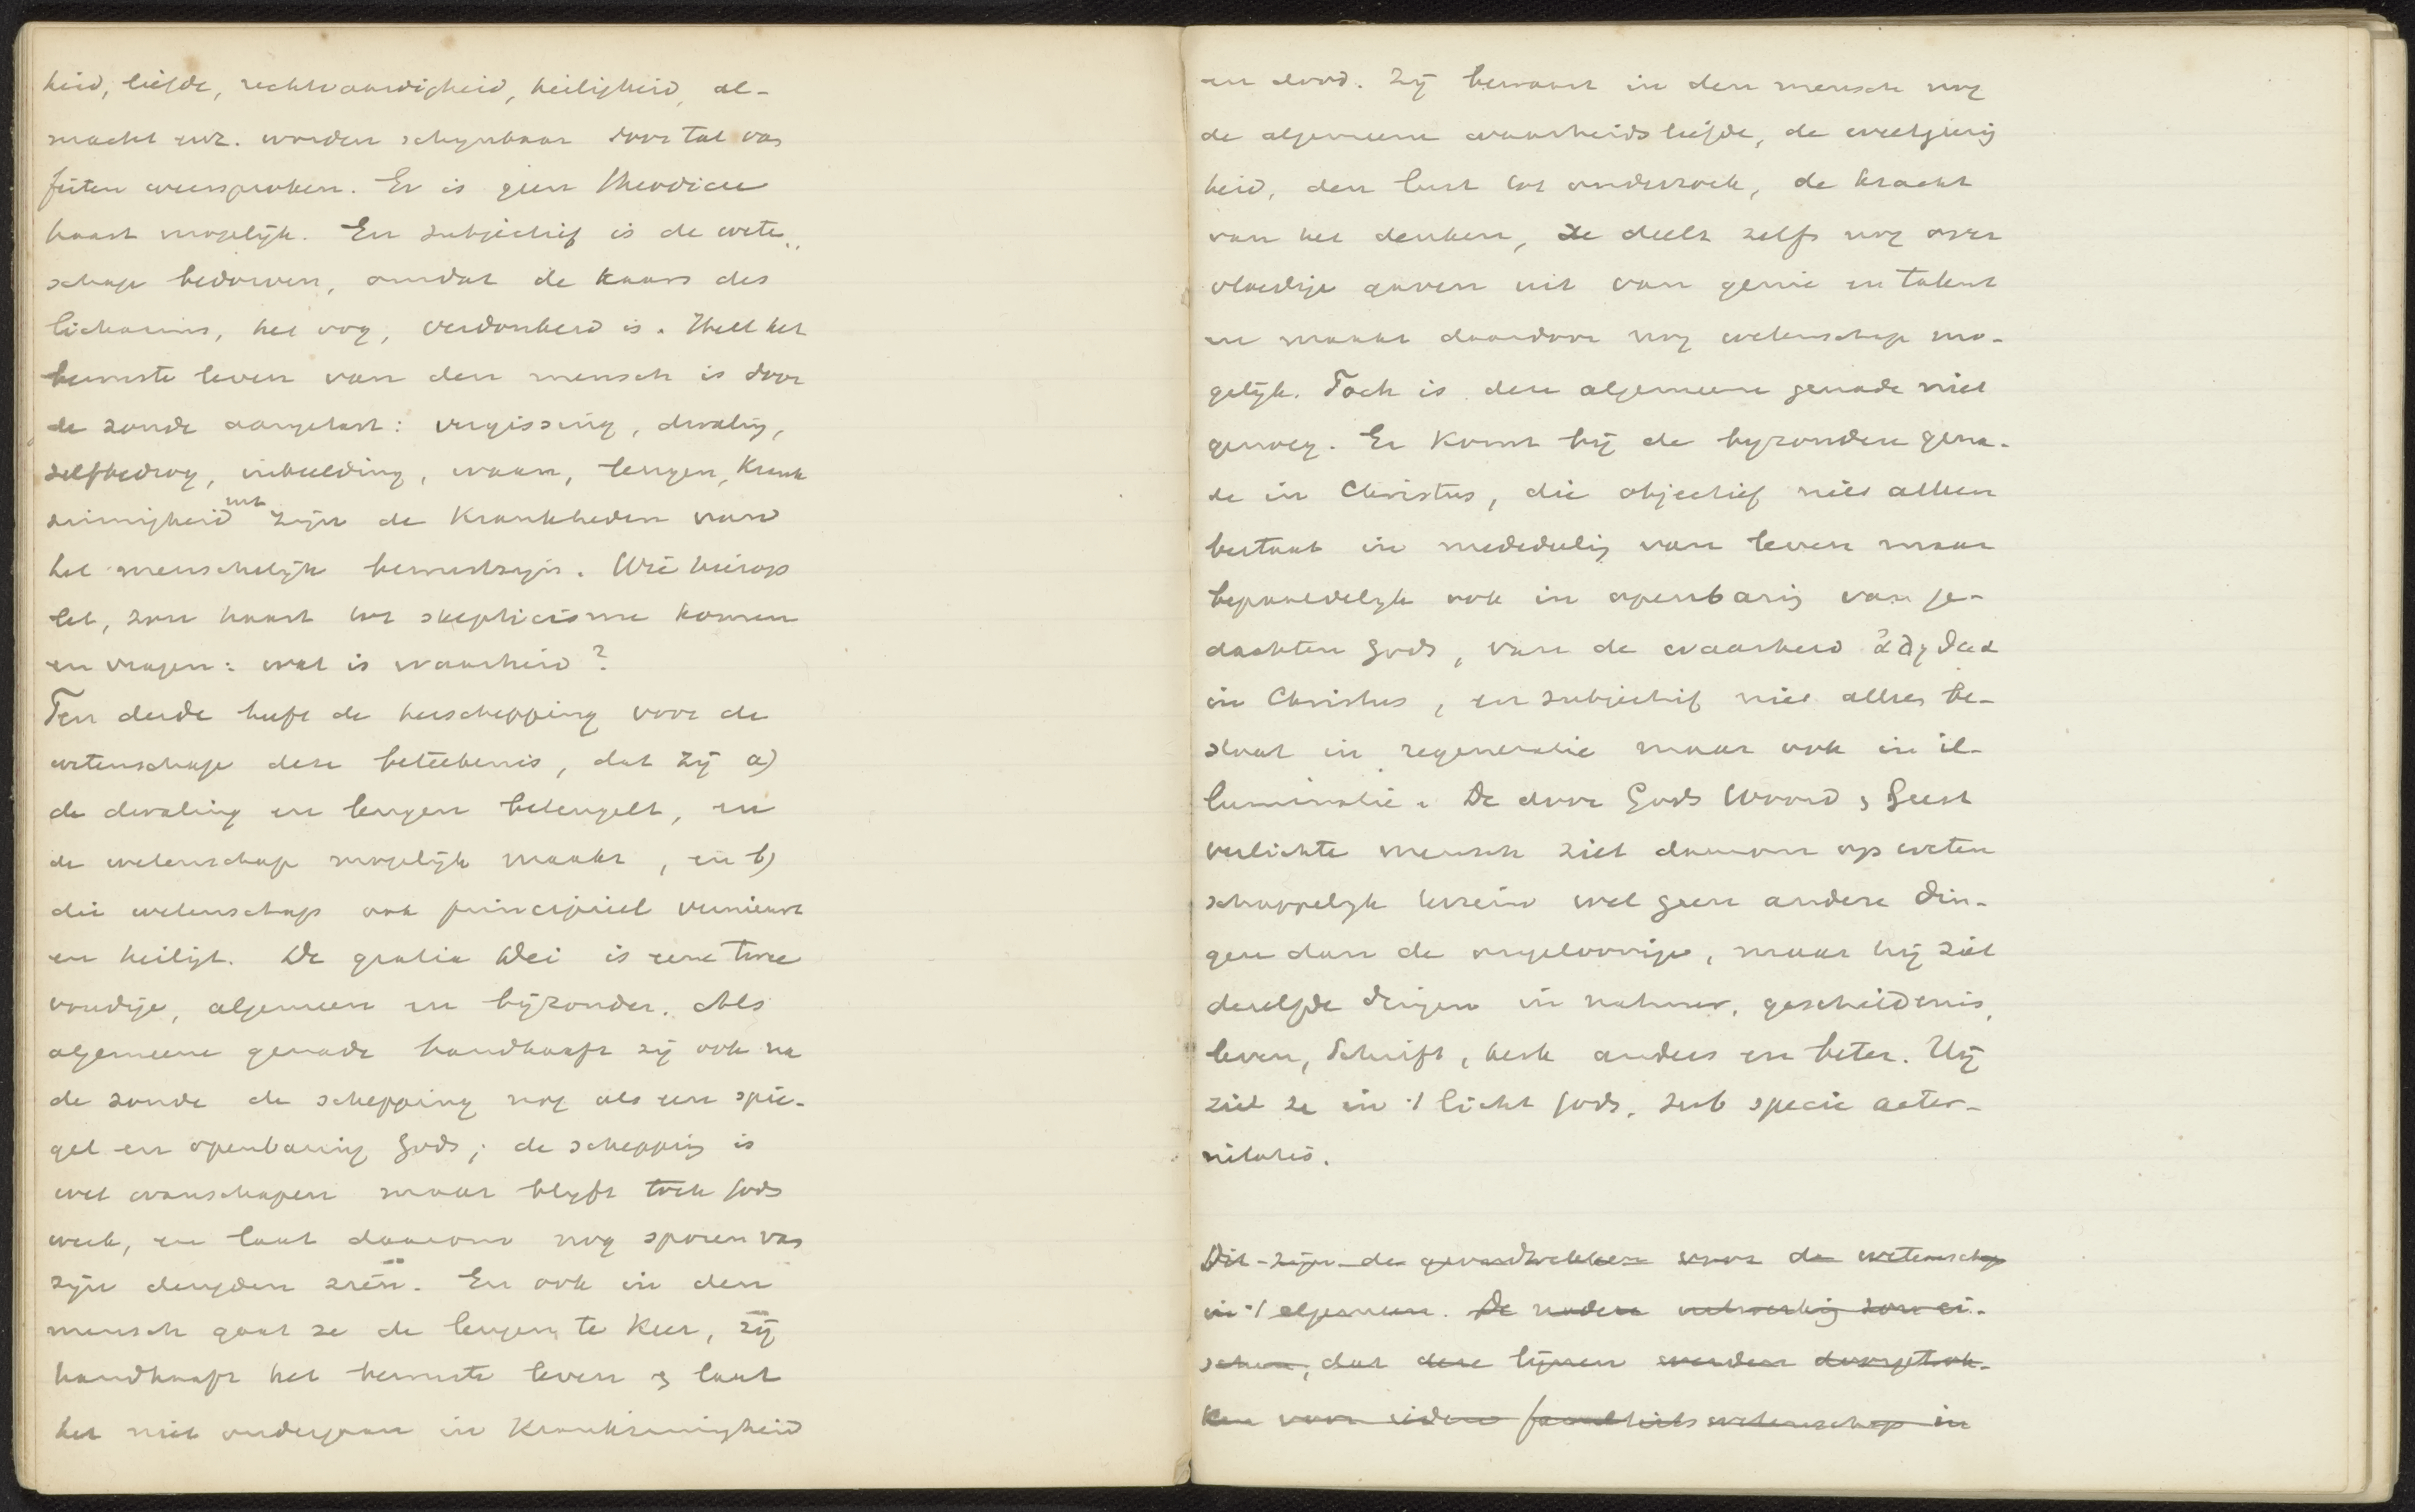 heid, liefde, rechtvaardigheid, heiligheid, al-
macht enz. worden schynbaar door tal van
feiten weersproken. Er is geen theodicee
haast mogelijk. En subjectief is de weten
schap bedorven, omdat de kaars des
lichaams, het oog, verdonkerd is. Heel het
bewuste leven van den mensch is door
de zonde aangetast: vergissing, dwaling,
zelfbedrog, inbeelding, waan, leugen, krank
zinnigheid enz. zijn de krankheden van
het menschelijk bewustzyn. Wie hierop
let, zou haast tot skepticisme komen
en vragen: wat is waarheid?
Ten derde heeft de herschepping voor de
wetenschap deze beteekenis, dat zij a)
de dwaling en leugen beteugelt, en
de wetenschap mogelijk maakt, en b)
die wetenschap ook principieel vernieuwt
en heiligt. De gratia Dei is eene twee
voudige, algemeen en bijzonder. Als
algemeene genade handhaaft zij ook na
de zonde de schepping nog als een spie-
gel en openbaring Gods; de schepping is
wel wanschapen maar blyft toch Gods
werk, en laat daarom nog sporen van
zijn deugden zien. En ook in den
mensch gaat ze de leugen te keer, zij
handhaaft het bewuste leven & laat
het niet ondergaan in krankzinnigheid
en dood. Zij bewaart in den mensch nog
de algemeene waarheidsliefde, de weetgierig
heid, den lust tot onderzoek, de kracht
van het denken, ze deelt zelfs nog over
vloedige gaven uit van genie en talent
en maakt daardoor nog wetenschap mo-
gelijk. Toch is deze algemeene genade niet
genoeg. Er komt bij de byzondere gena-
de in Christus, die objectief niet alleen
bestaat in mededeeling van leven maar
bepaaldelyk ook in openbaring van ge-
dachten Gods, van de waarheid ἀληθεια
in Christus, en subjectief niet alleen be-
staat in regeneratie maar ook in il-
luminatie. De door Gods Woord & Geest
verlichte mensch ziet daarom op weten
schappelyk terrein wel geen andere din-
gen dan de ongeloovige, maar hij ziet
dezelfde dingen in natuur, geschiedenis,
leven, Schrift, kerk anders en beter. Hij
ziet ze in 't licht Gods, sub specie aeter-
nitatis.
Dit zijn de grondtrekken voor de wetenschap
in 't algemeen. De nadere uitwerking zou ei-
schen, dat deze lijnen werden doorgetrok-
ken voor iedere faculteitswetenschap in